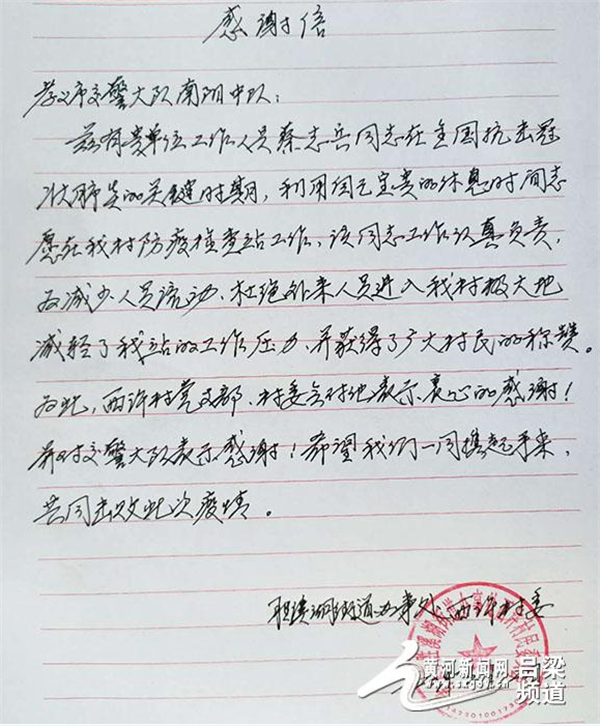 感谢信
孝义市交警大队南阳中队：
兹有贵单位工作人员蔡志兵同志在全国抗击冠
状肺炎的关键时期，利用自己宝贵的休息时间志
愿在我村防疫检查站工作，该同志工作认真负责，
为减少人员流动、杜绝外来人员进入我村极大地
减轻了我站的工作压力，并获得了广大村民的称赞。
为此，西许村党支部、村委会对他表示衷心的感谢！
并对交警大队表示感谢！希望我们一同携起手来，
共同击败此次疫情。
街道办事处西许村委
黄河新闻网
吕梁
频道